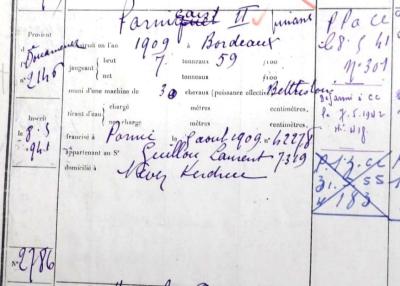 Provient
d
Douarnenez
2146
II
construit en l'an 1909 à Bordeaux
jaugeant brut 7 tonneaux 59 /100
net tonneaux /100
muni d'une machine de 30 chevaux (puissance effective)
tirant d'eau chargé mètres centimètres,
non chargé mètres centimètres.
francisé à le août 1909 nº 42278
appartenant au Sr Guillou Laurent 7319
domicilié à Névez Kerdruc
Inscrit
le 8.5
941
Nº 2786
P Pa CC
le 8.5.41
nº 301
le 7.5.1942
31.5.55
183